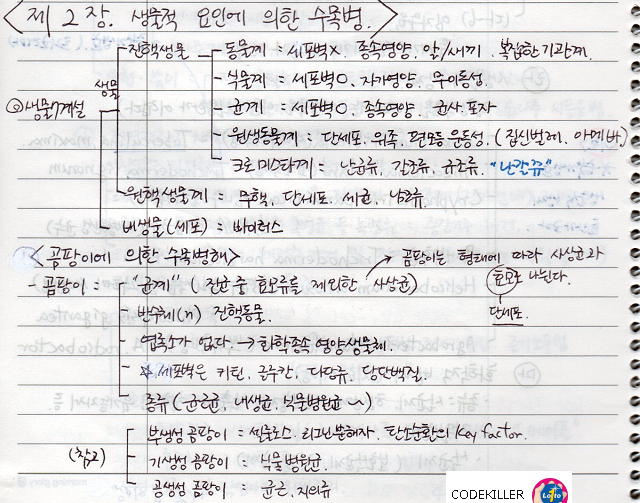 <제 2 장. 생물적 요인에 의한 수목병>
진핵생물 동물계 = 세포벽×. 종속영양. 알/새끼. 복잡한 기관계.
생물 식물계 = 세포벽O. 자가영양. 무이동성.
균계 = 세포벽O. 종속영양. 균사.포자
생물7계설
원생동물계 : 단세포. 위족. 편모등 운동성. (짚신벌레. 아메바.)
크로미스타계 = 난균류, 갈조류, 규조류. "난갈규"
원핵생물계 = 무핵, 단세포. 세균, 남조류.
비생물(세포) = 바이러스
<곰팡이에 의한 수목병해> → 곰팡이는 형태에 따라 사상균과
곰팡이 = "균계" (진균 중 효모류를 제외한 사상균) 효모로 나뉜다.
반수체(n) 진핵동물. 단세포.
엽록소가 없다 → 화학종속 영양생물체.
☆ 세포벽은 키틴, 글루칸, 다당류, 당단백질.
종류 (균근균, 내생균, 식물병원균 ~)
(참고) 부생성 곰팡이 = 셀룰로스. 리그닌분해자. 탄소순환의 Key factor.
기생성 곰팡이 = 식물병원균
공생성 곰팡이 = 균근, 지의류
CODEKILLER
Lotto